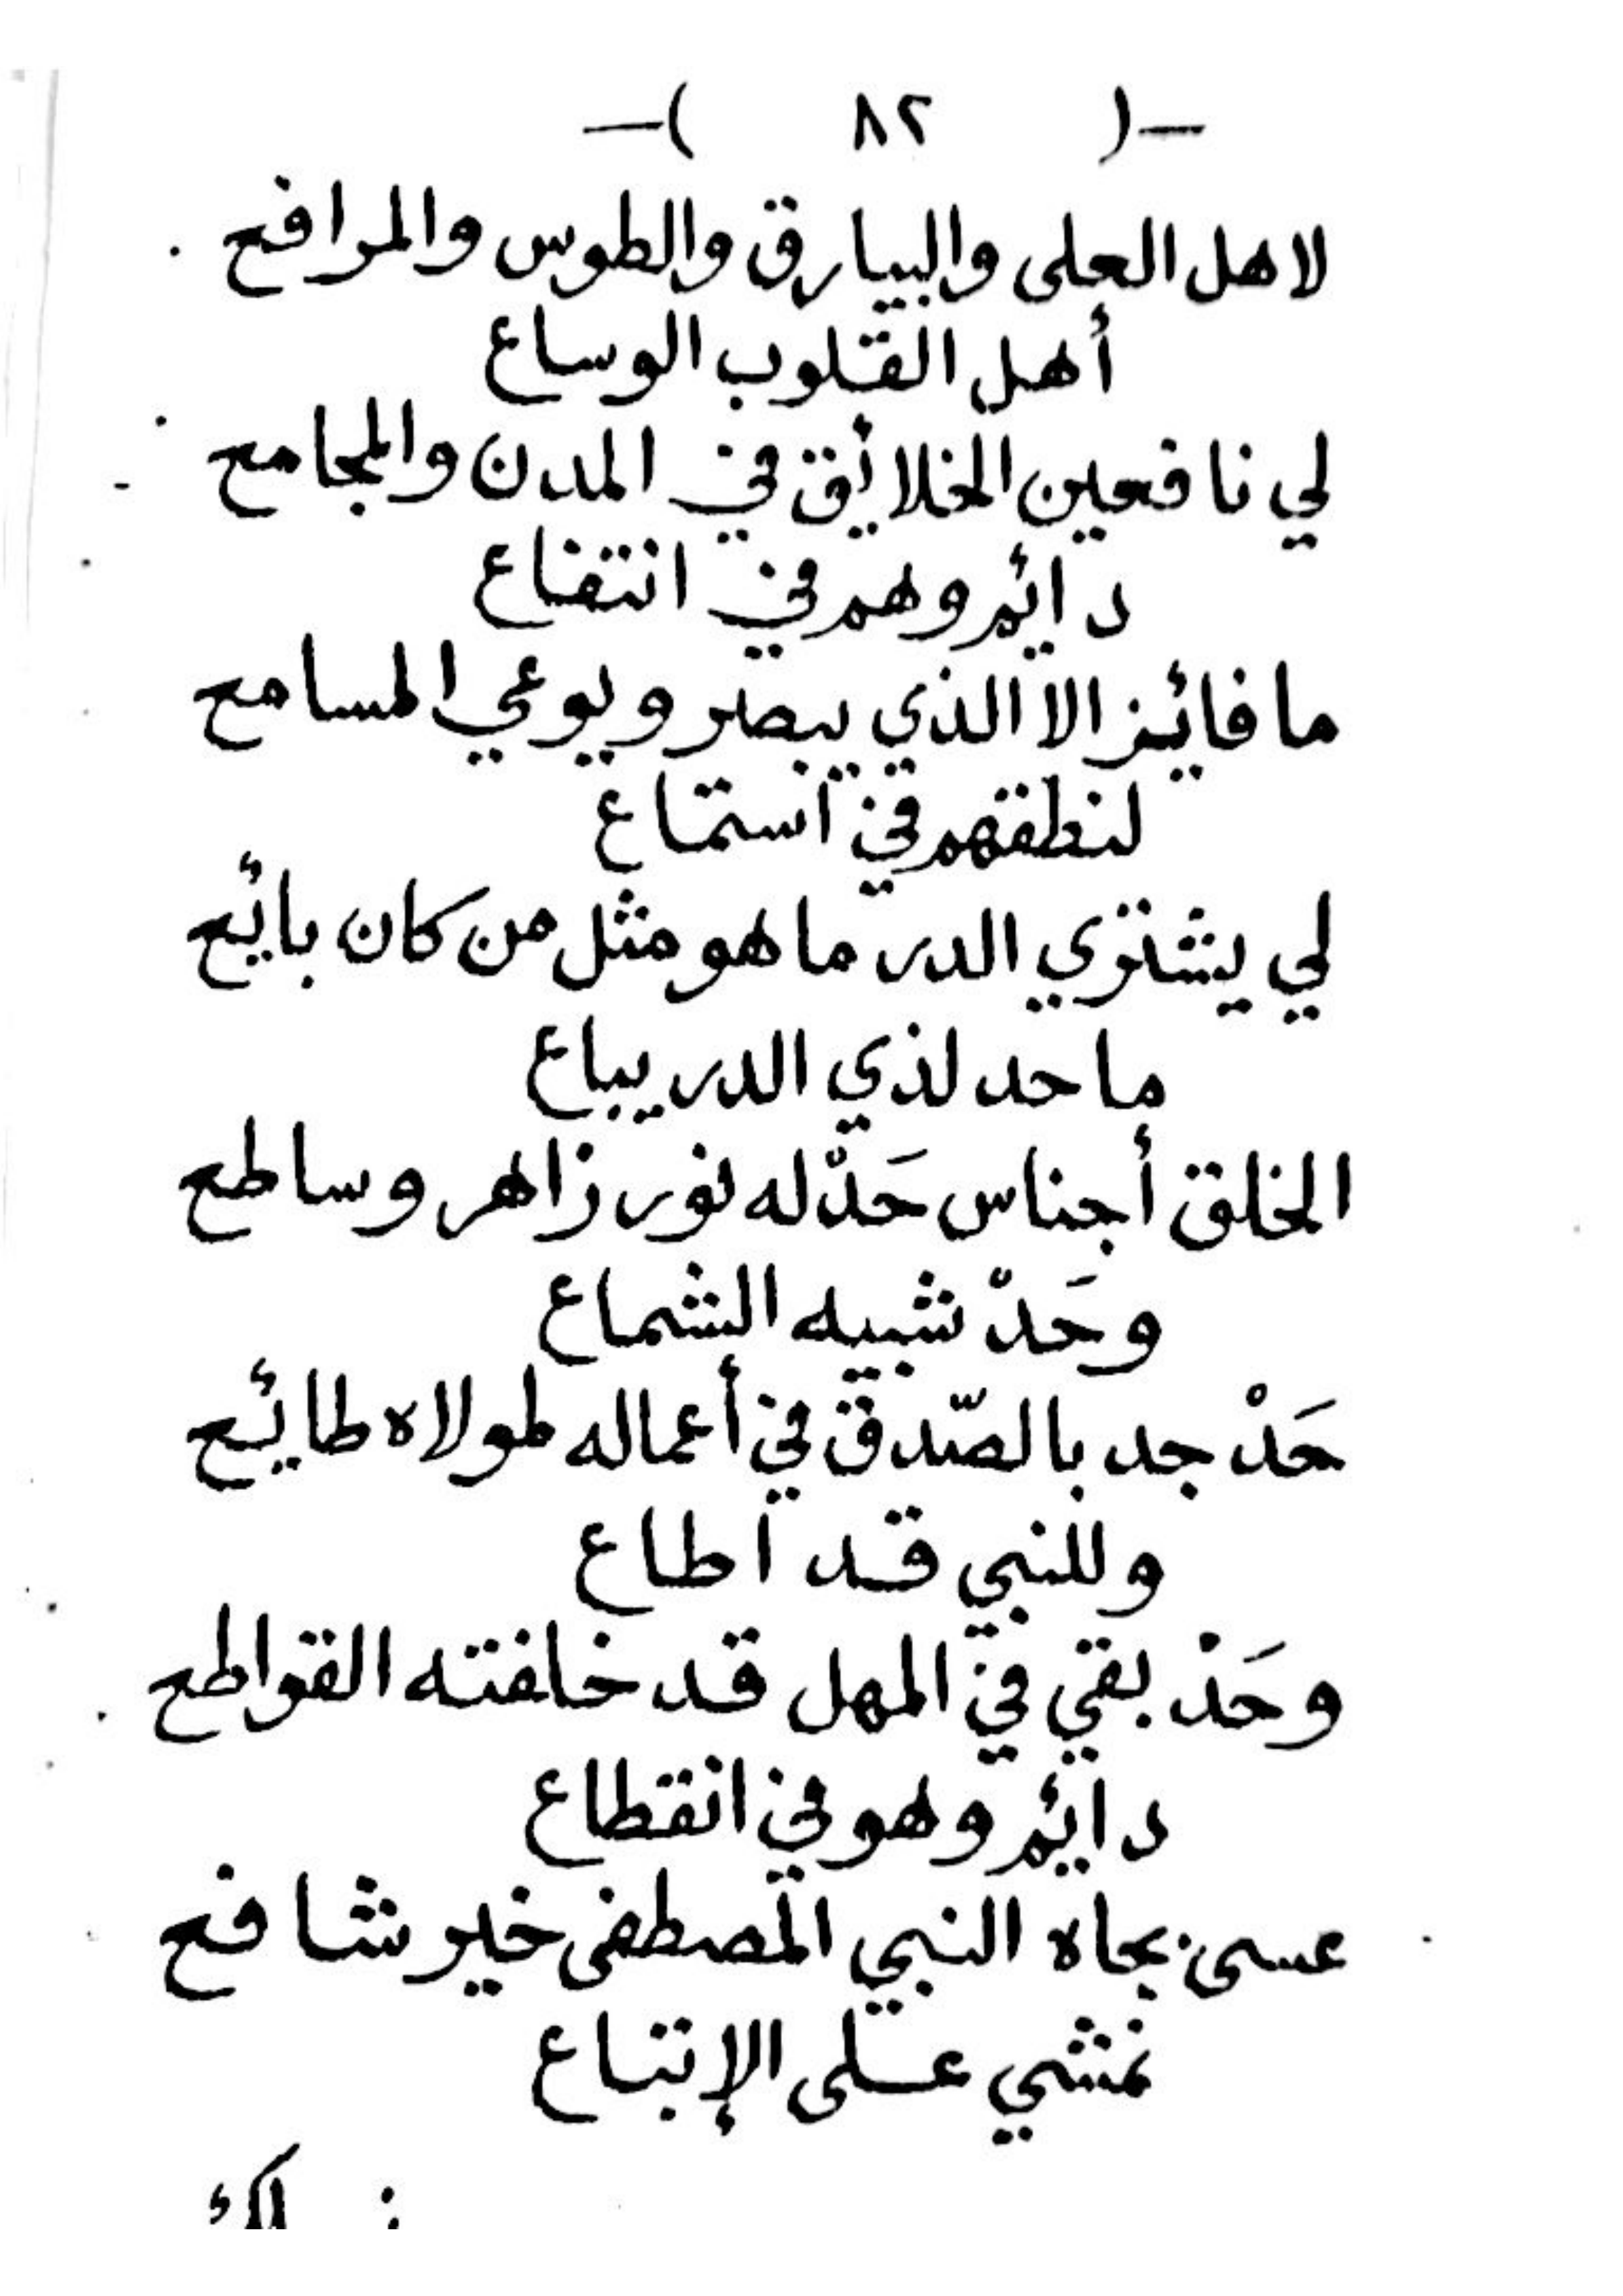 -( ٨٢ )-
لاهل العلى والبيارق والطوس والمرافع
أهل القلوب الوساع
لي نافعين الخلائق في المدن والمجامع
دائم وهم في انتفاع
ما فائز الا الذي يبصر ويوعي المسامع
لنطقهم في استماع
لي يشتري الدر ما هو مثل من كان بائع
ما حد لذي الدر يباع
الخلق أجناس حَدّ له نور زاهر وساطع
وحَدّ شبيه الشماع
حَدْ جد بالصّدق في أعماله لمولاه طائع
وللنبي قد اطاع
وحَدْ بقي في المهل قد خلفته القواطع
دائم وهو في انقطاع
عسى بجاه النبي المصطفى خير شافع
نمشي على الإتباع